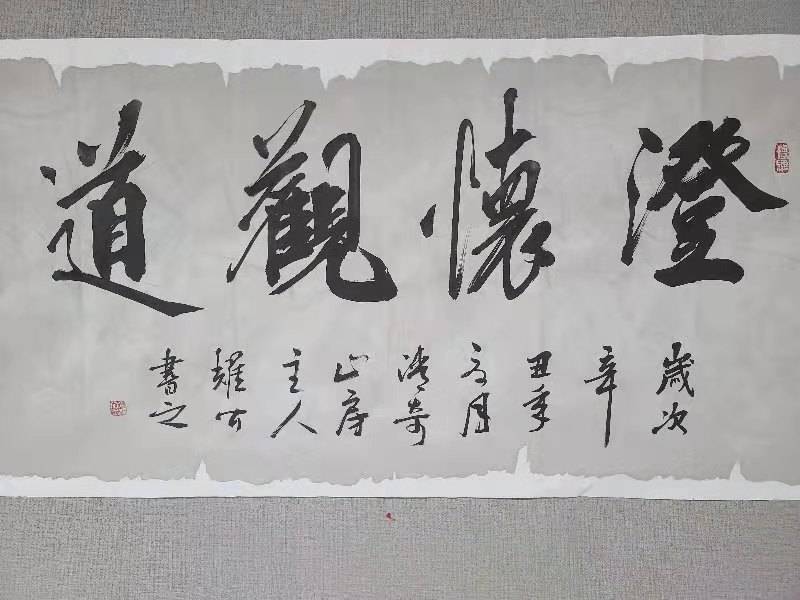 澄懷觀道
歲次
辛
丑年
月
奇
山房
主人
耀
書之